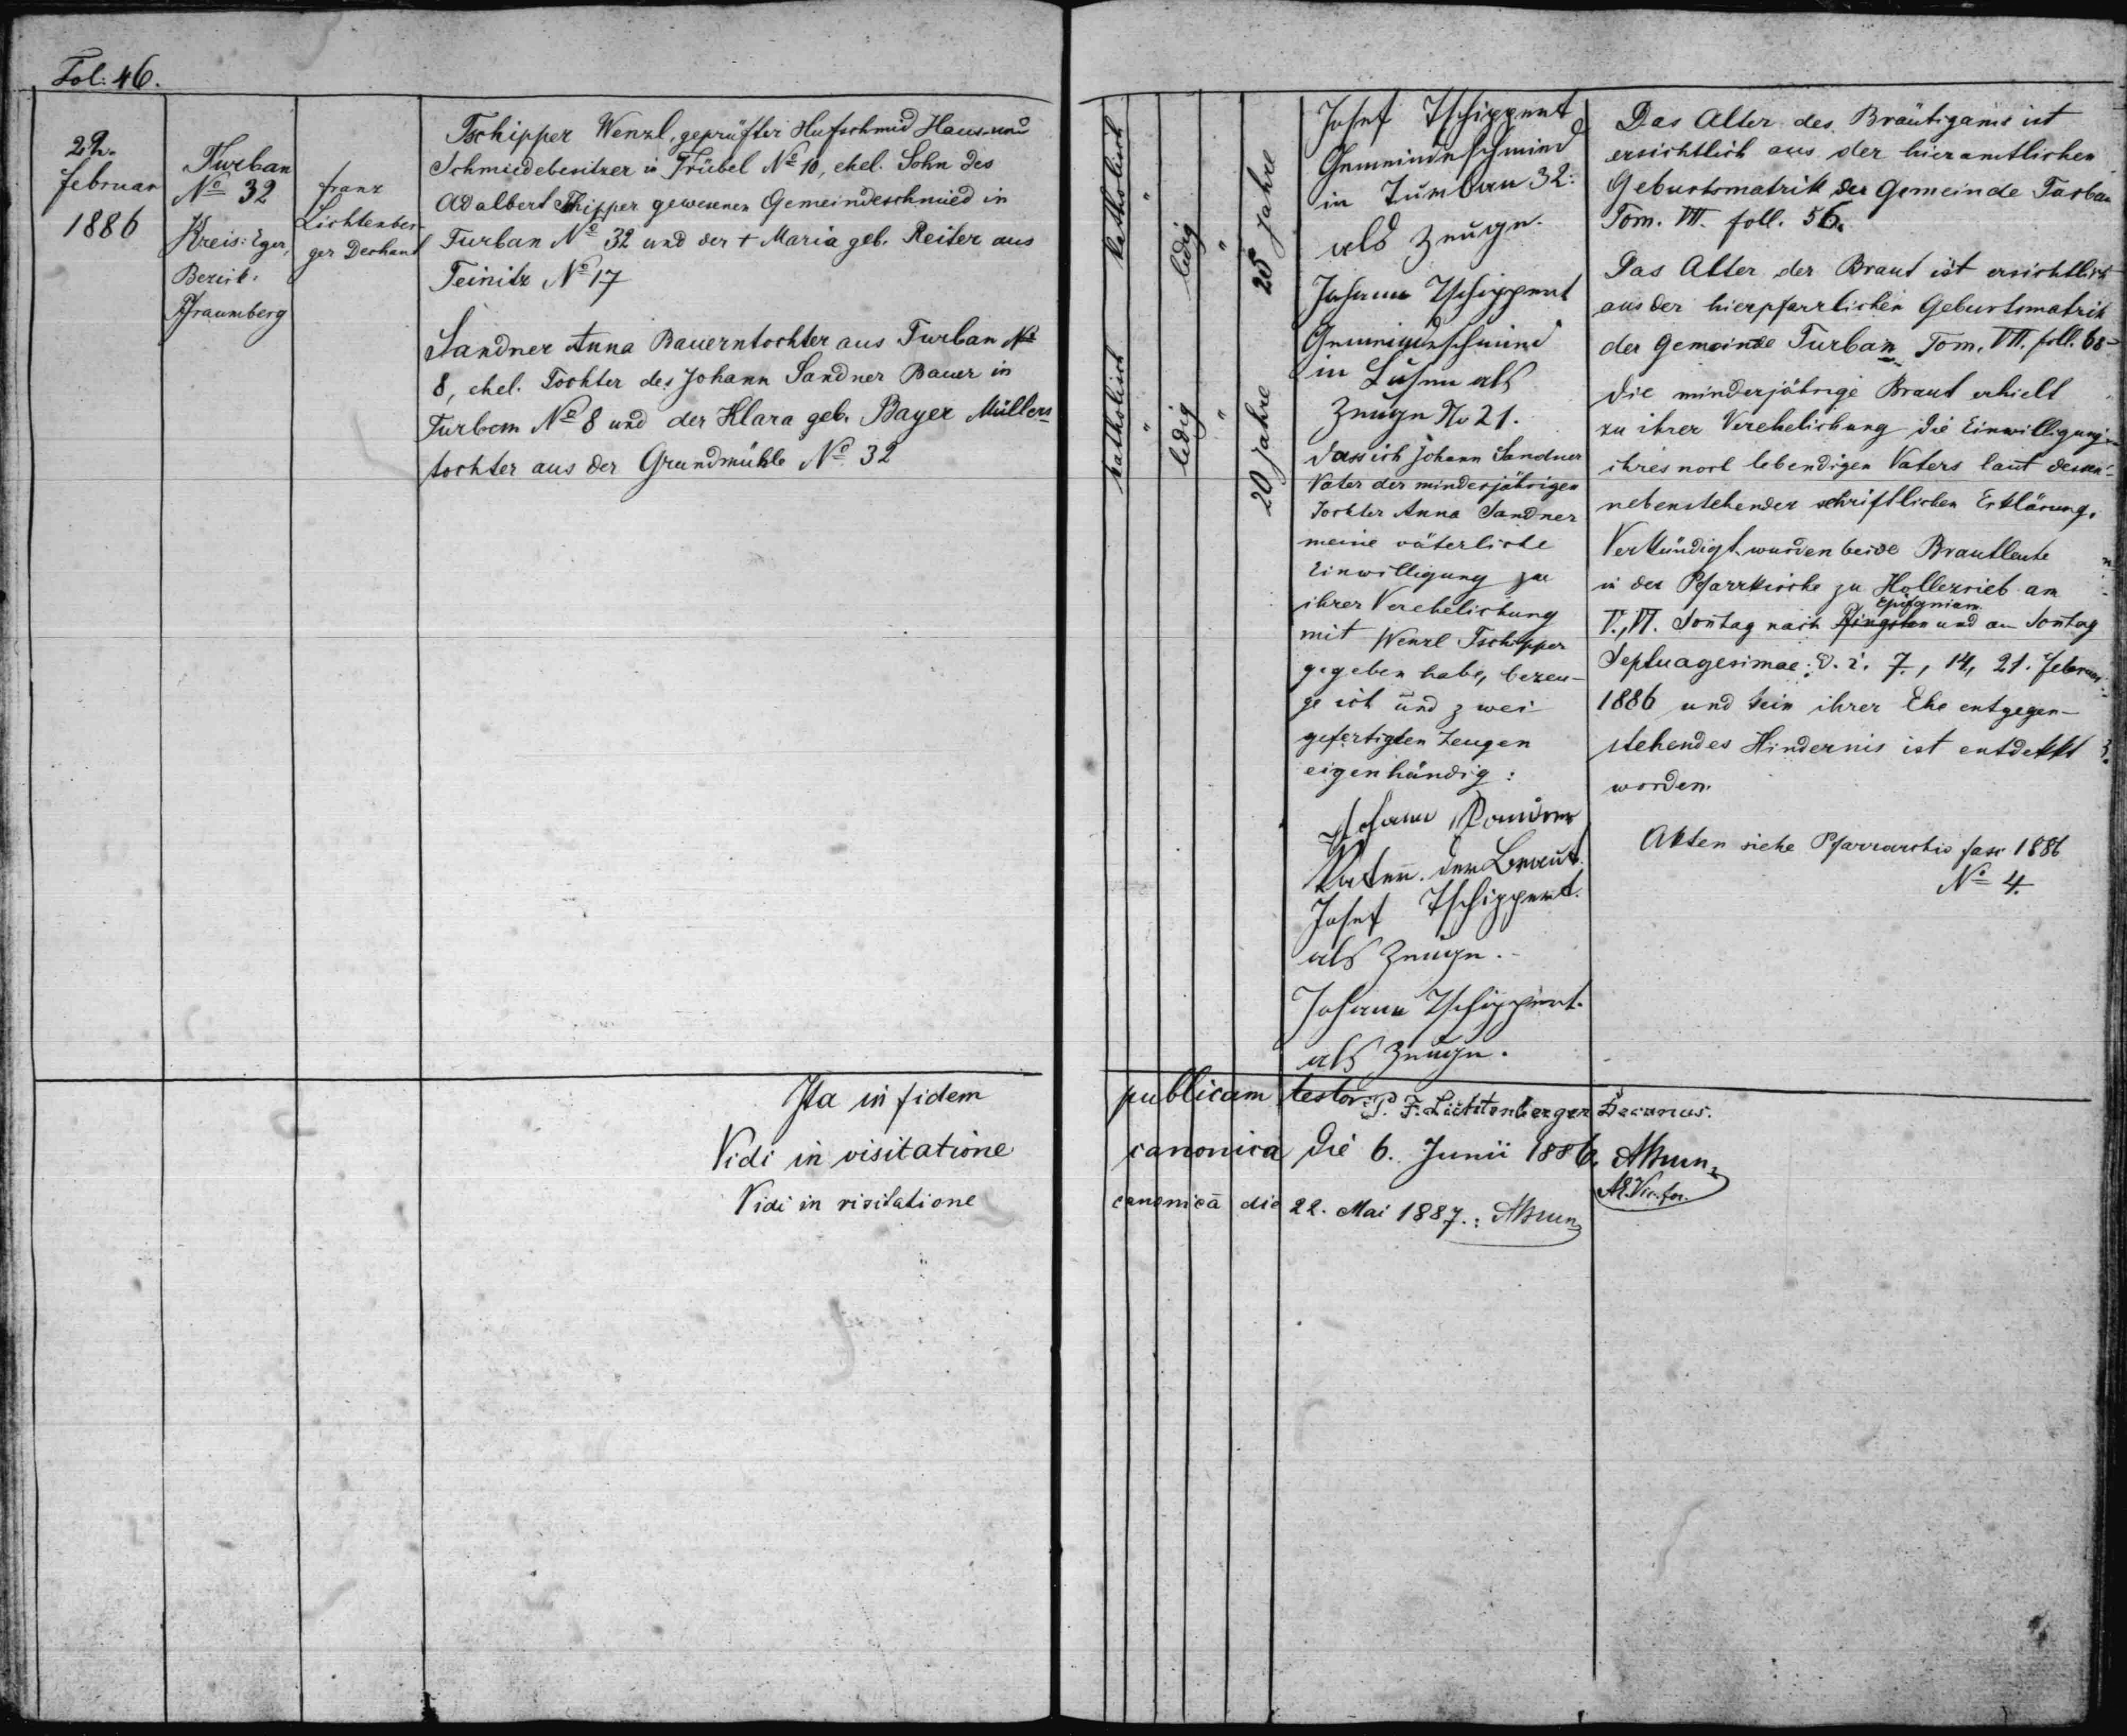 Fol: 46.
22.
Februar
1886
Turban
No 32
Kreis: Eger,
Bezirk:
Pfraumberg
Franz
Lichtenber-
ger Dechant
Tschipper Wenzl, geprüfter Hufschmid Haus- und
Schmiedebesitzer in Trübel No 10, ehel. Sohn des
Adalbert Tschipper gewesenen Gemeindeschmied in
Turban No 32 und der + Maria geb. Reiter aus
Teinitz No 17
Sandner Anna Bauerntochter aus Turban No
8, ehel. Tochter des Johann Sandner Bauer in
Turban No 8 und der Klara geb. Bayer Müllers-
tochter aus der Grundmühle No 32
katholisch
"
ledig
"
25 Jahre
katholisch
"
ledig
"
20 Jahre
Josef Tschippert
Gemeindeschmied
in Turban 32:
als Zeuge.
Johann Tschippert
Gemeindeschmied
in als
Zeuge No 21.
Dass ich Johann Sandner
Vater der minderjährigen
Tochter Anna Sandner
meine väterliche
Einwilligung zu
ihrer Verehelichung
mit Wenzl Tschipper
gegeben habe, bezeu-
ge ich und zwei
gefertigten Zeugen
eigenhändig:
Johann Sandner
Vater der Braut.
Josef Tschippert.
als Zeuge.
Johann Tschippert.
als Zeuge.
Das Alter des Bräutigams ist
ersichtlich aus der hieramtlichen
Geburtsmatrik der Gemeinde Turban
Tom. VII. foll. 56.
Das Alter der Braut ist ersichtlich
aus der hierpfarrlichen Geburtsmatrik
der Gemeinde Turban Tom. VII. foll. 68
Die minderjährige Braut erhielt
zu ihrer Verehelichung die Einwilligung
ihres noch lebendigen Vaters laut dessen
nebenstehender schriftlichen Erklärung.
Verkündigt wurden beide Brautleute
in der Pfarrkirche zu Hollezrieb am
Epifaniam
V., VI. Sontag nach Pfingsten und am Sontag
Septuagesimae: d. i. 7., 14, 21. Februar
1886 und kein ihrer Ehe entgegen-
stehendes Hindernis ist entdekkt
worden.
Akten siehe Pfarrarchiv fasc 1886
No 4.
Ita in fidem publicam testor: P. F. Lichtenberger Decanus.
Vidi in visitatione canonica die 6. Junii 1886.
Vidi in visitatione canonicâ die 22. Mai 1887.: